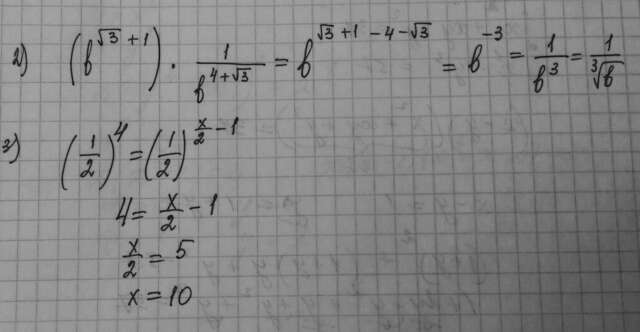 2) (b^(√3 + 1)) · 1/b^(4+√3) = b^(√3 + 1 - 4 - √3) = b^(-3) = 1/b^3 = 1/∛b
3) (1/2)^4 = (1/2)^(x/2 - 1)
4 = x/2 - 1
x/2 = 5
x = 10